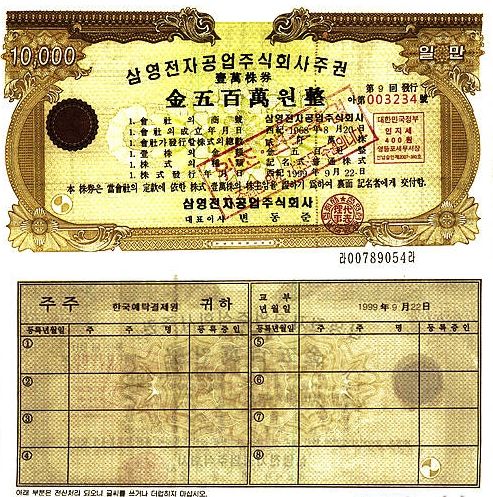 10,000
일만
삼영전자공업주식회사주권
壹萬株券
金五百萬원整
第9回 發行
아第003234號
1. 會社의 商號 삼영전자공업주식회사
1. 會社의 成立年月日 西紀 1968年 8月 20日
1. 會社가 發行할 株式의 總數
1. 壹株의 金
1. 株式의 種類 記名式普通株式
1. 株式發行年月日 西紀 1999年 9月 22日
대한민국정부
인지세
400원
영등포세무서장
本 株券은 當會社의 定款에 依한 株式 壹萬株의 株主임을 證하기 爲하여 裏面 記名者에게 交付함.
삼영전자공업주식회사
대표이사 변동준
라00789054라
주주 한국예탁결제원 귀하
교부년월일 1999年 9月 22日
등록년월일 주주명 등록증인 등록년월일 주주명 등록증인
① ⑤
② ⑥
③ ⑦
④ ⑧
아래 부분은 전산처리 되오니 글씨를 쓰거나 더럽히지 마십시오.